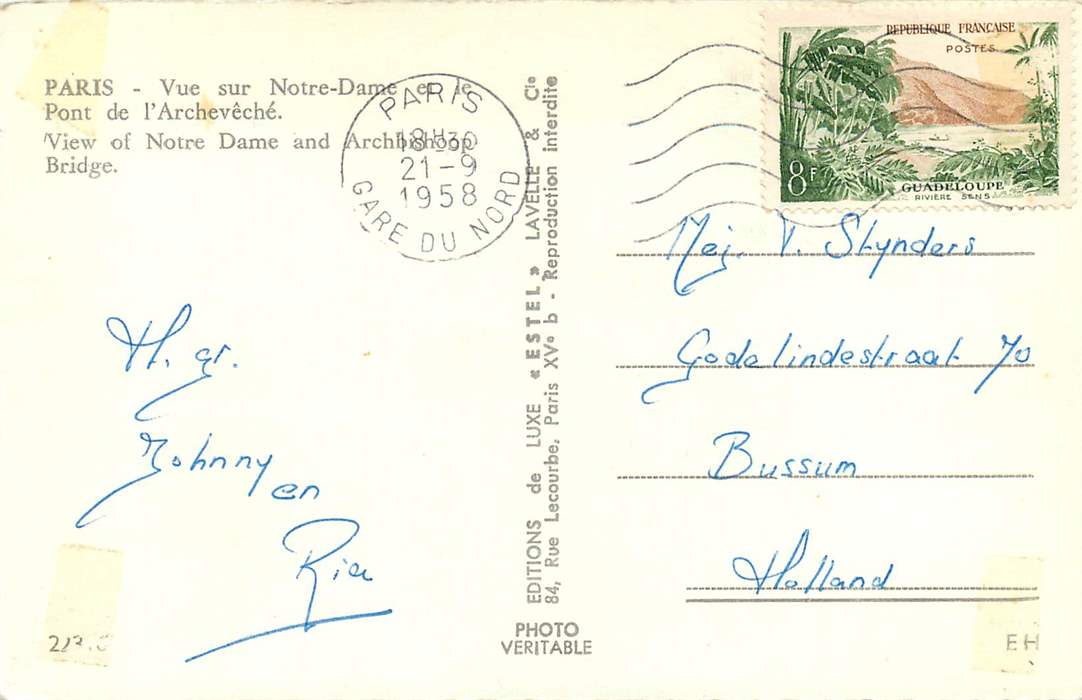 PARIS - Vue sur Notre-Dame et le
Pont de l'Archevêché.
View of Notre Dame and Archbishoop
Bridge.
PARIS
18H30
21-9
1958
GARE DU NORD
REPUBLIQUE FRANÇAISE
POSTES
8F
GUADELOUPE
RIVIÈRE SENS
H. gr.
Johnny
en
Ria
EDITIONS de LUXE «ESTEL» LAVELLE & Cie
84, Rue Lecourbe, Paris XVe b - Reproduction interdite
PHOTO
VERITABLE
Mej. V. Stynders
Godelindestraat 70
Bussum
Holland
EH